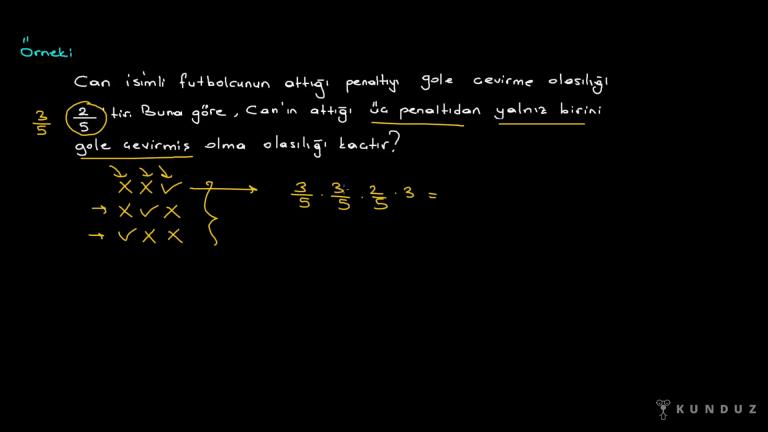 Örnek:
Can isimli futbolcunun attığı penaltıyı gole çevirme olasılığı
3/5 2/5 'tir. Buna göre, Can'ın attığı üç penaltıdan yalnız birini
gole çevirmiş olma olasılığı kaçtır?
X X ✓ → 3/5 · 3/5 · 2/5 · 3 =
→ X ✓ X
→ ✓ X X
KUNDUZ